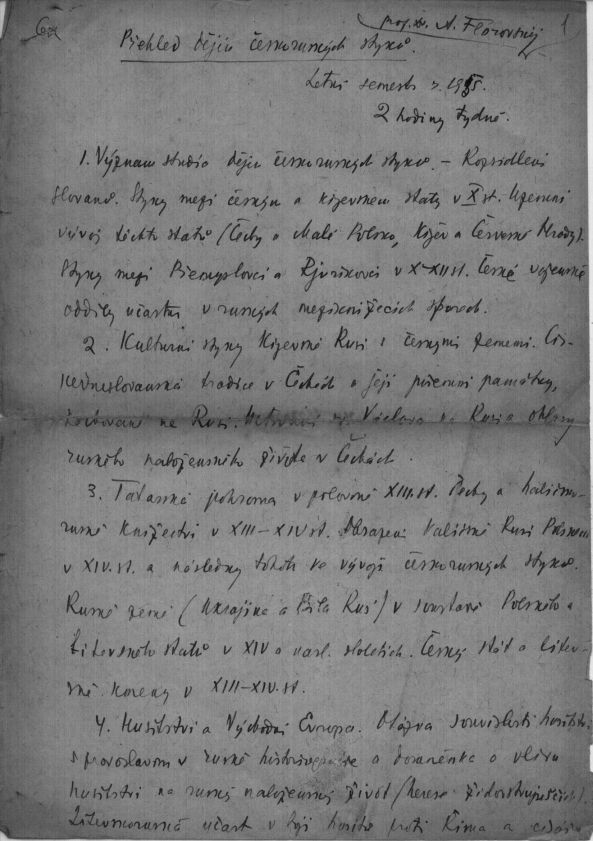 prof. dr. A. Florovskij
1
Přehled dějin českoruských styků.
Letní semestr r. 19
2 hodiny týdně.
1. Význam studia dějin českoruských styků. – Rozsídlení
Slovanů. Styky mezi českým a kijevským státy v X st. Upevnění
vývoj těchto států (Čechy a Malé Polsko, Kijev a Červené Hrady).
Styky mezi Přemyslovci a Rjurikovci v X–XII st. České vojenské
oddíly účastny v ruských meziknížecích sporech.
2. Kulturní styky Kijevské Rusi s českými zeměmi. Cír-
kevněslovanská tradice v Čechách a její písemní památky,
na Rusi. Václava na Rusi a ohlasy
ruského náboženského života v Čechách.
3. Tatarská pohroma v polovině XIII. st. Čechy a haličsko-
ruské knížectví v XIII–XIV st. Obsazení Haličské Rusi Polskem
v XIV. st. a následky tohoto ve vývoji českoruských styků.
Ruské země (Ukrajina a Bílá Rus) v soustavě Polského a
Litevského států v XIV a násl. stoletích. Český stát a litev-
ské kmeny v XIII–XIV. st.
4. Husitství a Východní Evropa. Otázka souvislosti husitství
s pravoslavím v ruské historiografii a domněnka o vlivu
husitství na ruský náboženský život (herese židovstvujuščich).
Litevskoruská účast v boji husitů proti Římu a císaři